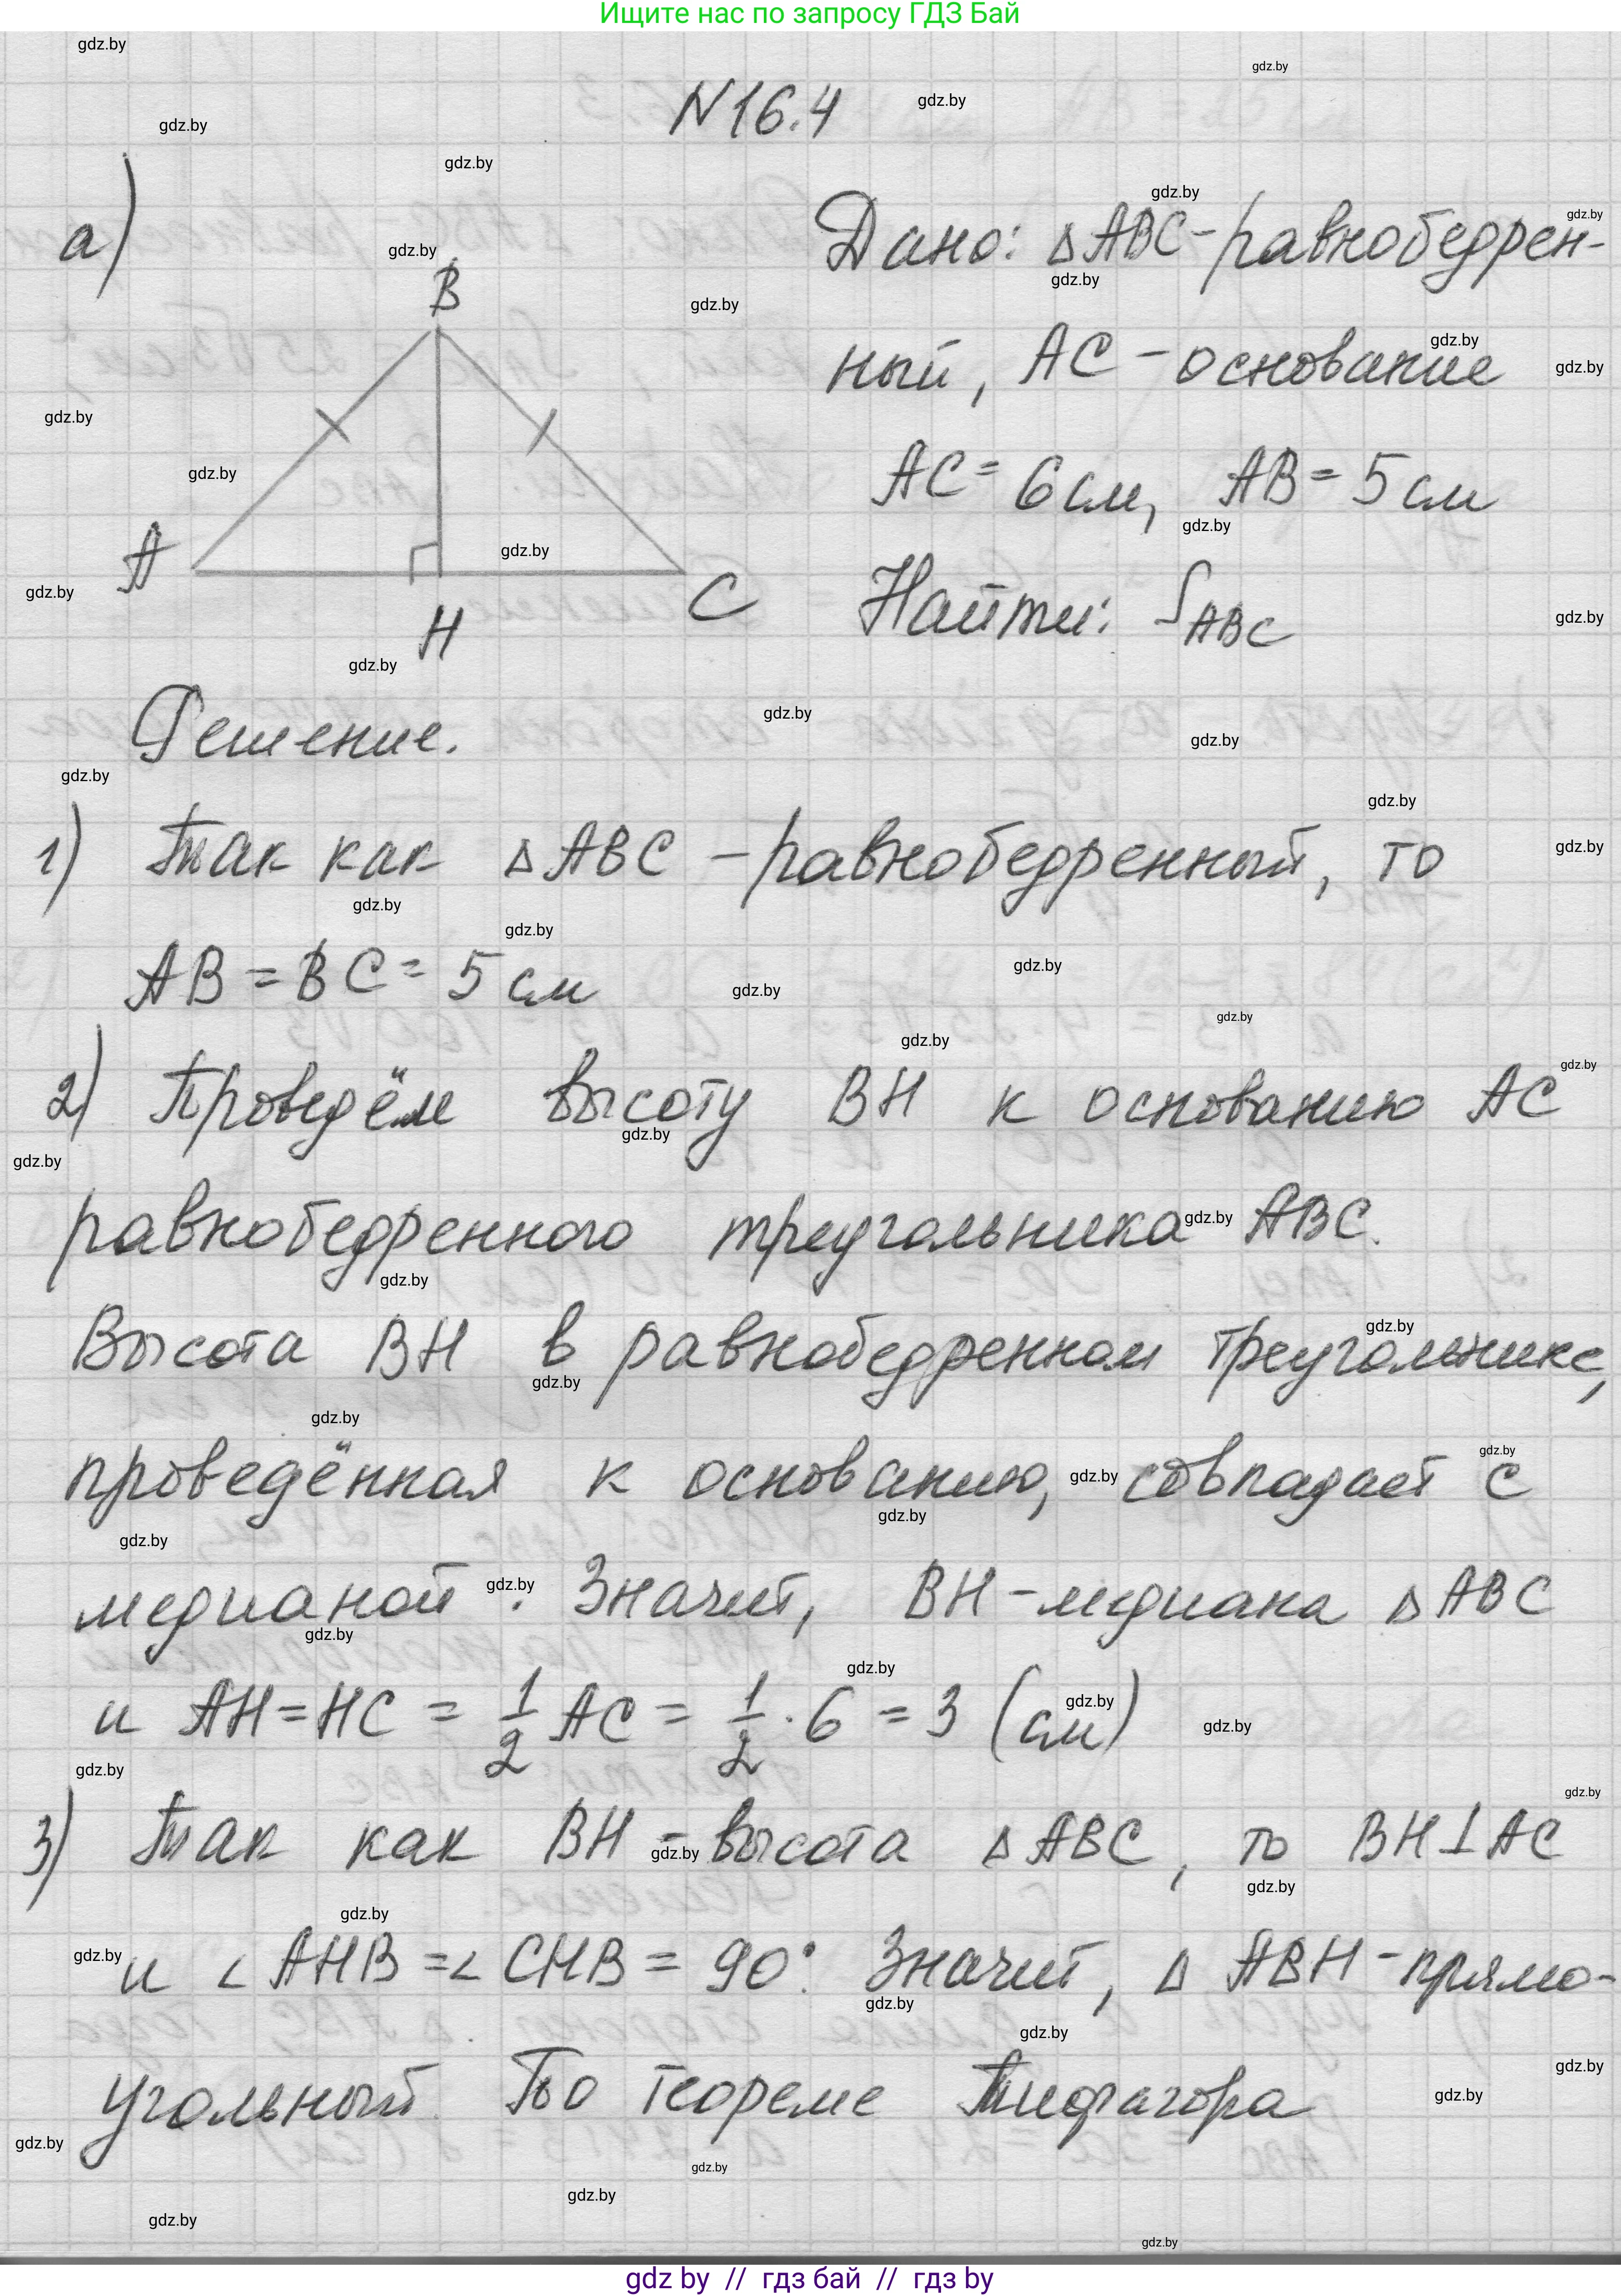 Ищите нас по запросу ГДЗ Бай
N16.4
а)
B
A
C
H
Дано: ΔABC-равнобедрен-
ный, AC - основание
AC = 6 см, AB = 5 см
Найти: S_ABC
Решение.
1) Так как ΔABC - равнобедренный, то
AB = BC = 5 см
2) Проведём высоту BH к основанию AC
равнобедренного треугольника ABC.
Высота BH в равнобедренном треугольнике,
проведённая к основанию, совпадает с
медианой. Значит, BH - медиана ΔABC
и AH = HC = 1/2 AC = 1/2 · 6 = 3 (см)
3) Так как BH - высота ΔABC, то BH⊥AC
и ∠AHB = ∠CHB = 90°. Значит, ΔABH - прямо-
угольный. По теореме Пифагора
gdz.by
gdz by // гдз бай // гдз by